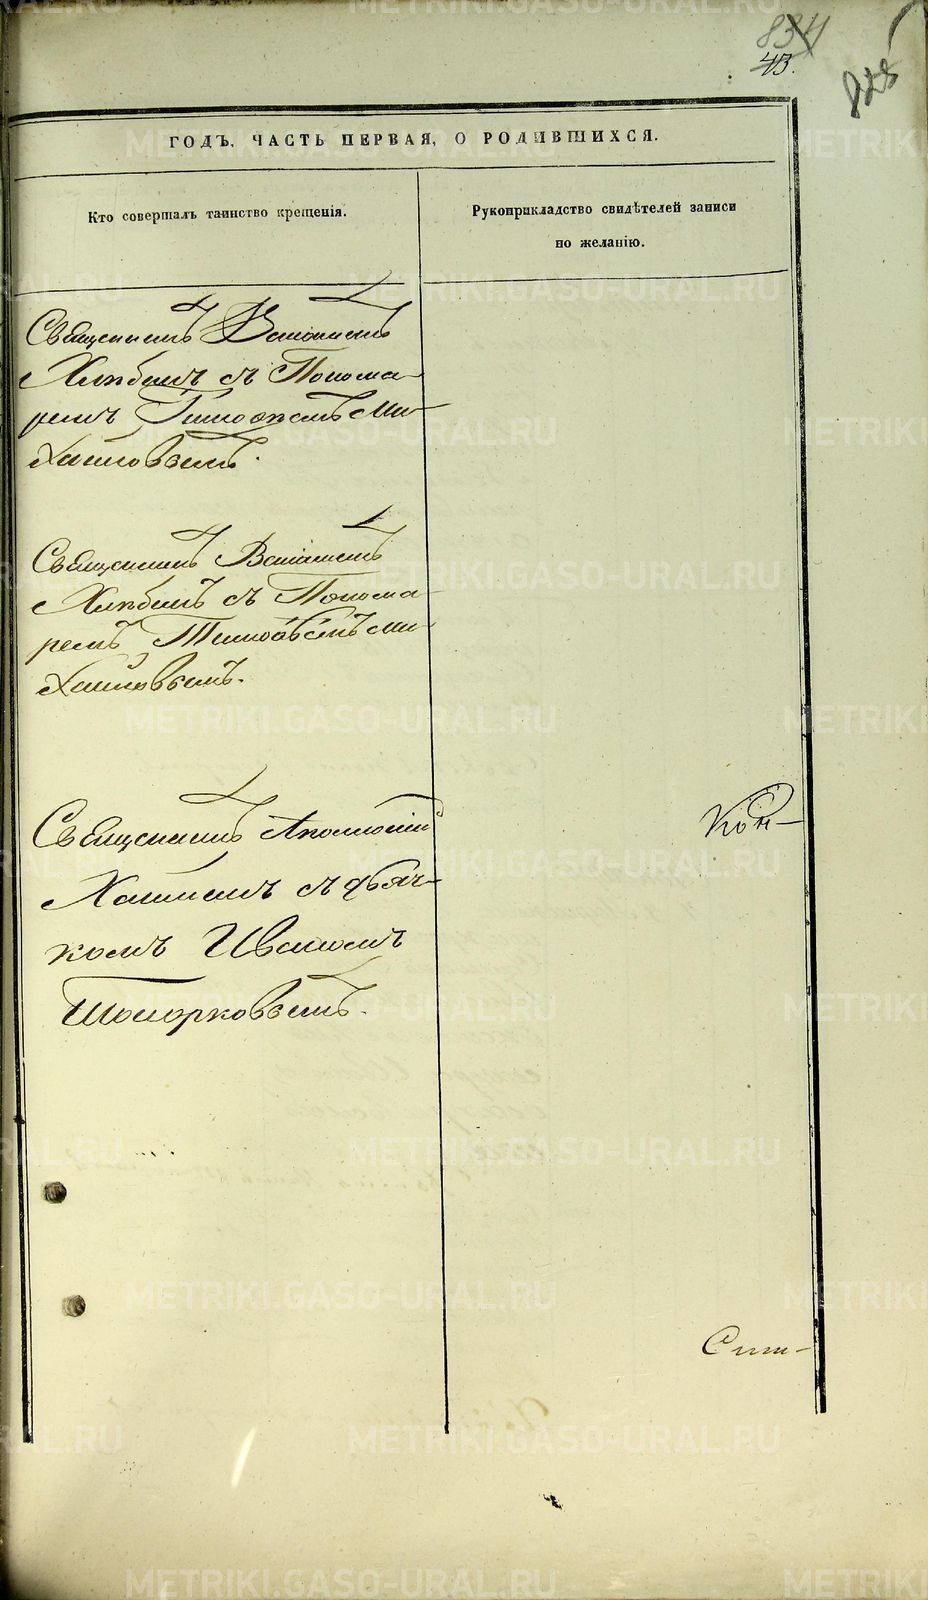 834
43.
828
ГОДЪ, ЧАСТЬ ПЕРВАЯ, О РОДИВШИХСЯ.
Кто совершалъ таинство крещенія.
Рукоприкладство свидѣтелей записи
по желанію.
Священникъ
Хлѣбинъ съ Понома-
ремъ Тимоѳеемъ Ми-
хайловымъ.
Священникъ
Хлѣбинъ съ Понома-
ремъ Тимоѳеемъ Ми-
хайловымъ.
Священникъ Аполлоній
съ дьяч-
комъ Иваномъ
Топорковымъ.
METRIKI.GASO-URAL.RU